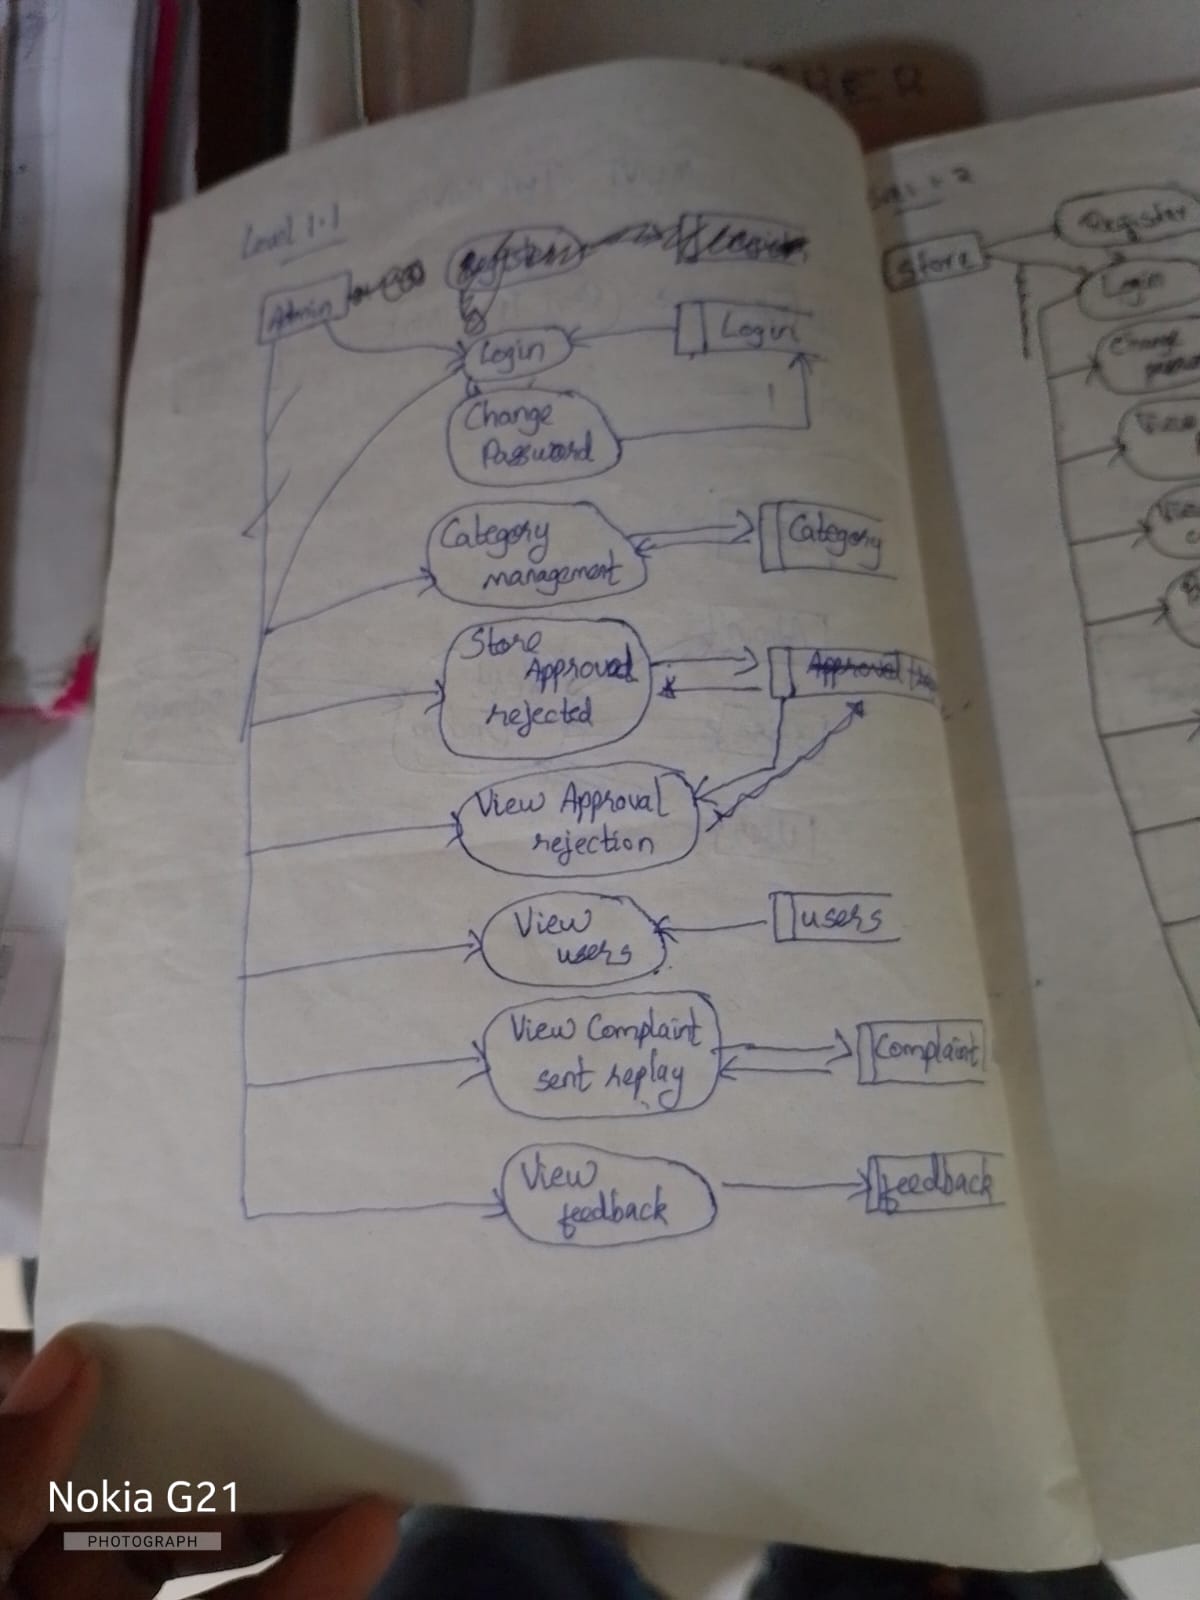 Level 1.1
Admin
Login
Login
Change
Password
Category
management
Category
Store
Approved
rejected
Approval
View Approval
rejection
View
users
users
View Complaint
sent replay
Complaint
View
feedback
feedback
Store
Register
Login
Change
Nokia G21
PHOTOGRAPH